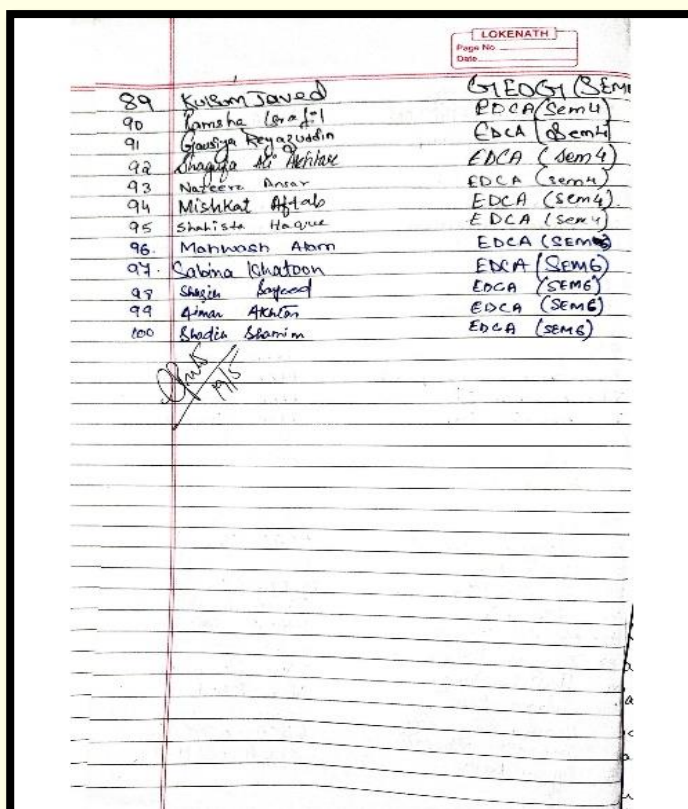 LOKENATH
Page No.
Date
89 Kulsum Javed GEOG (SEM
90 Ramsha Israfil EDCA (Sem4)
91 Gausiya Reyazuddin EDCA (Sem4)
92 Ali Akhtar EDCA (Sem4)
93 Nazeera Ansar EDCA (Sem4)
94 Mishkat Aftab EDCA (Sem4).
95 Shahista Haque EDCA (Sem4)
96. Mahwash Alam EDCA (SEM
97. Sabina Khatoon EDCA (SEM6)
98 Sayeed EDCA (SEM6)
99 Aiman Akhtar EDCA (SEM6)
100 Shadia Shamim EDCA (SEM6)
19/5